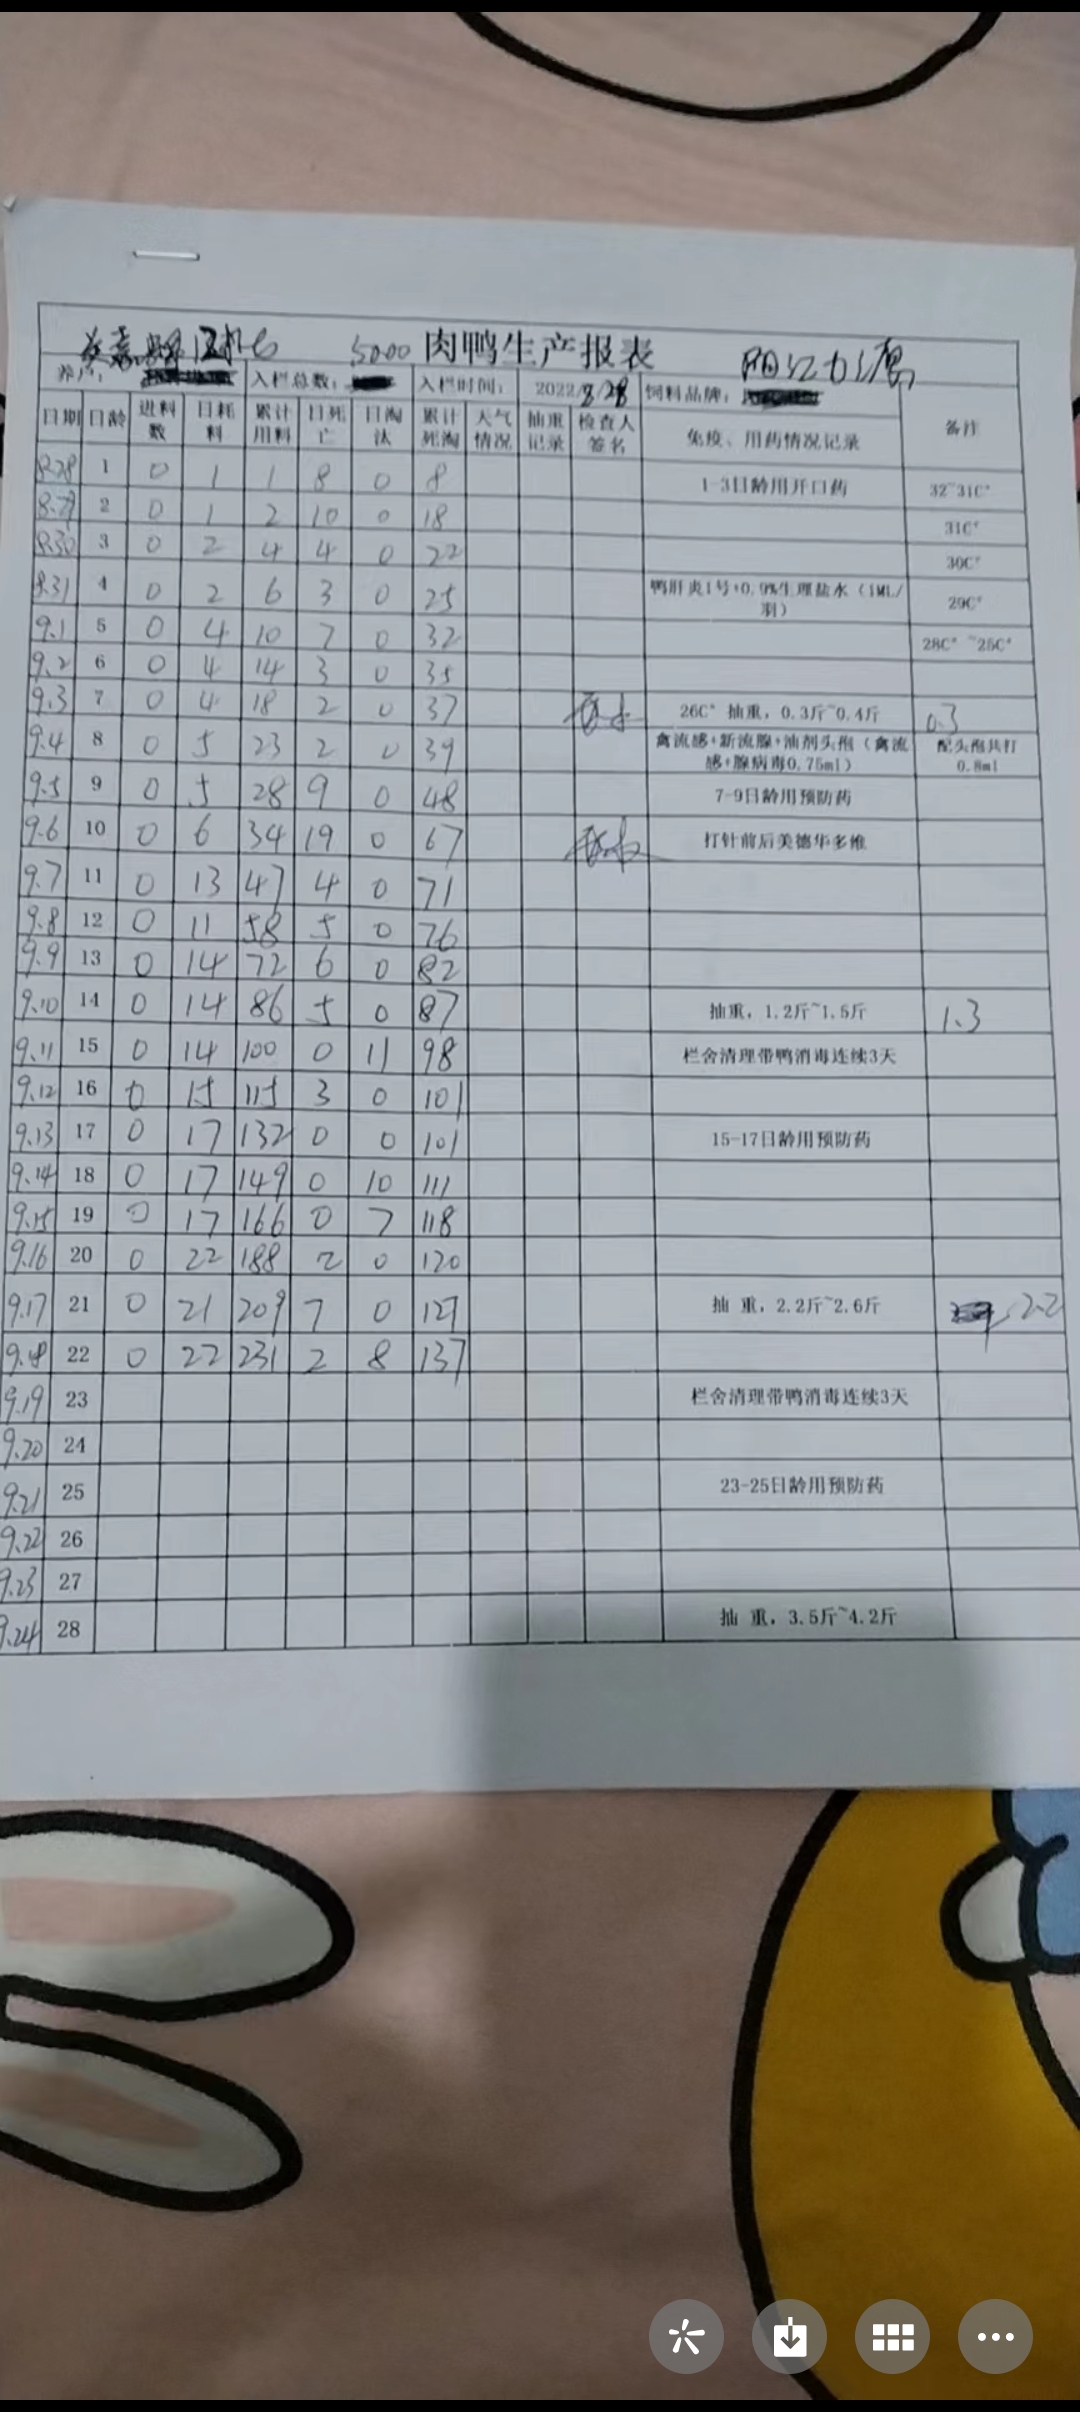 5000 肉鸭生产报表 阳江力源
养户: 入栏总数: 入栏时间: 2022/8/28 饲料品牌:
日期 日龄 进料数 日耗料 累计用料 日死亡 日淘汰 累计死淘 天气情况 抽重记录 检查人签名 免疫、用药情况记录 备注
8.28 1 0 1 1 8 0 8 1-3日龄用开口药 32~31C°
8.29 2 0 1 2 10 0 18 31C°
8.30 3 0 2 4 4 0 22 30C°
8.31 4 0 2 6 3 0 25 鸭肝炎1号+0.9%生理盐水（1ML/羽） 29C°
9.1 5 0 4 10 7 0 32 28C°~25C°
9.2 6 0 4 14 3 0 35
9.3 7 0 4 18 2 0 37 26C° 抽重，0.3斤~0.4斤 0.3
9.4 8 0 5 23 2 0 39 禽流感+新流腺+油剂头孢（禽流感+腺病毒0.75ml） 配头孢共打0.8ml
9.5 9 0 5 28 9 0 48 7-9日龄用预防药
9.6 10 0 6 34 19 0 67 打针前后美德华多维
9.7 11 0 13 47 4 0 71
9.8 12 0 11 58 5 0 76
9.9 13 0 14 72 6 0 82
9.10 14 0 14 86 5 0 87 抽重，1.2斤~1.5斤 1.3
9.11 15 0 14 100 0 11 98 栏舍清理带鸭消毒连续3天
9.12 16 0 15 115 3 0 101
9.13 17 0 17 132 0 0 101 15-17日龄用预防药
9.14 18 0 17 149 0 10 111
9.15 19 0 17 166 0 7 118
9.16 20 0 22 188 2 0 120
9.17 21 0 21 209 7 0 127 抽 重，2.2斤~2.6斤 2.2
9.18 22 0 22 231 2 8 137
9.19 23 栏舍清理带鸭消毒连续3天
9.20 24
9.21 25 23-25日龄用预防药
9.22 26
9.23 27
9.24 28 抽 重，3.5斤~4.2斤